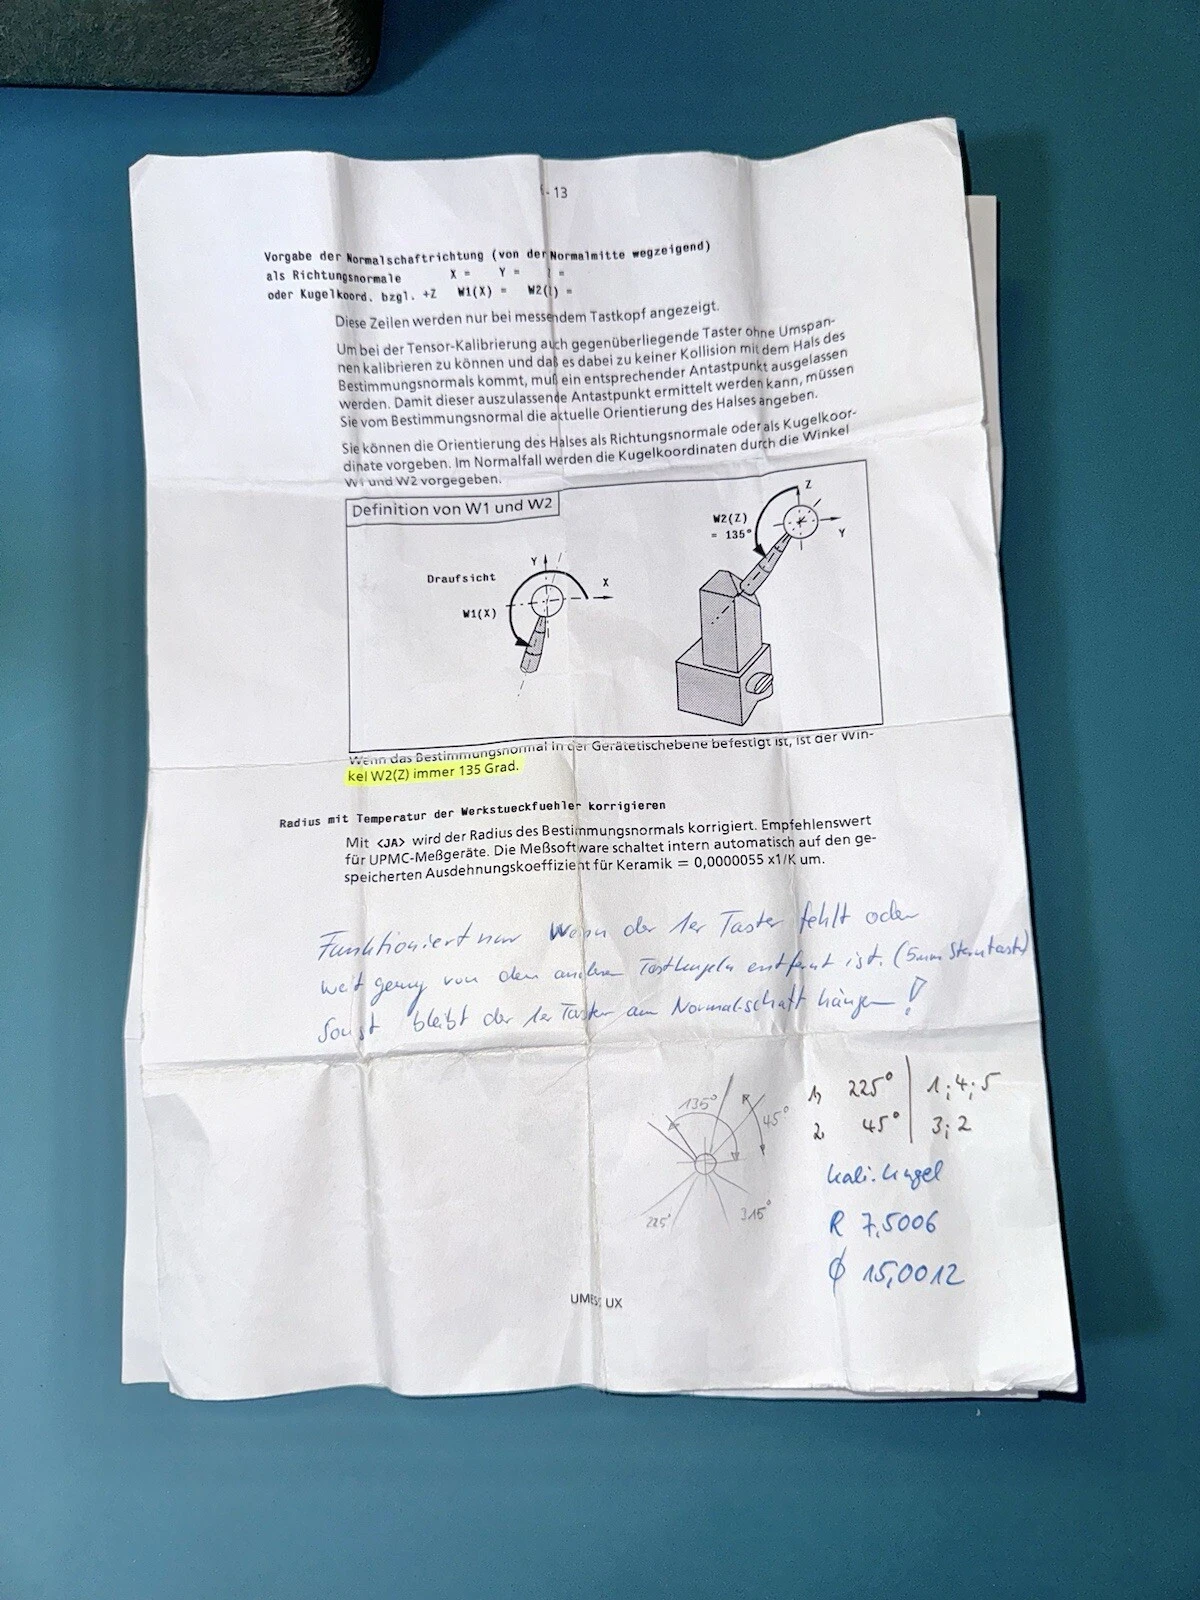 - 13
Vorgabe der Normalschaftrichtung (von der Normalmitte wegzeigend)
als Richtungsnormale X = Y = =
oder Kugelkoord. bzgl. +Z W1(X) = W2( ) =
Diese Zeilen werden nur bei messendem Tastkopf angezeigt.
Um bei der Tensor-Kalibrierung auch gegenüberliegende Taster ohne Umspan-
nen kalibrieren zu können und daß es dabei zu keiner Kollision mit dem Hals des
Bestimmungsnormals kommt, muß ein entsprechender Antastpunkt ausgelassen
werden. Damit dieser auszulassende Antastpunkt ermittelt werden kann, müssen
Sie vom Bestimmungsnormal die aktuelle Orientierung des Halses angeben.
Sie können die Orientierung des Halses als Richtungsnormale oder als Kugelkoor-
dinate vorgeben. Im Normalfall werden die Kugelkoordinaten durch die Winkel
W1 und W2 vorgegeben.
Definition von W1 und W2
Z
W2(Z)
= 135°
Y
Y
Draufsicht
X
W1(X)
Wenn das Bestimmungsnormal in der Gerätetischebene befestigt ist, ist der Win-
kel W2(Z) immer 135 Grad.
Radius mit Temperatur der Werkstueckfuehler korrigieren
Mit <JA> wird der Radius des Bestimmungsnormals korrigiert. Empfehlenswert
für UPMC-Meßgeräte. Die Meßsoftware schaltet intern automatisch auf den ge-
speicherten Ausdehnungskoeffizient für Keramik = 0,0000055 x1/K um.
Funktioniert nur Wenn der 1er Taster fehlt oder
weit genug von den anderen Tastkugeln entfernt ist. (5mm Sterntaster)
Sonst bleibt der 1er Taster am Normalschaft hängen!
135°
45°
225°
315°
1) 225° | 1; 4; 5
2) 45° | 3; 2
Kali. Kugel
R 7,5006
Ø 15,0012
UMESS UX